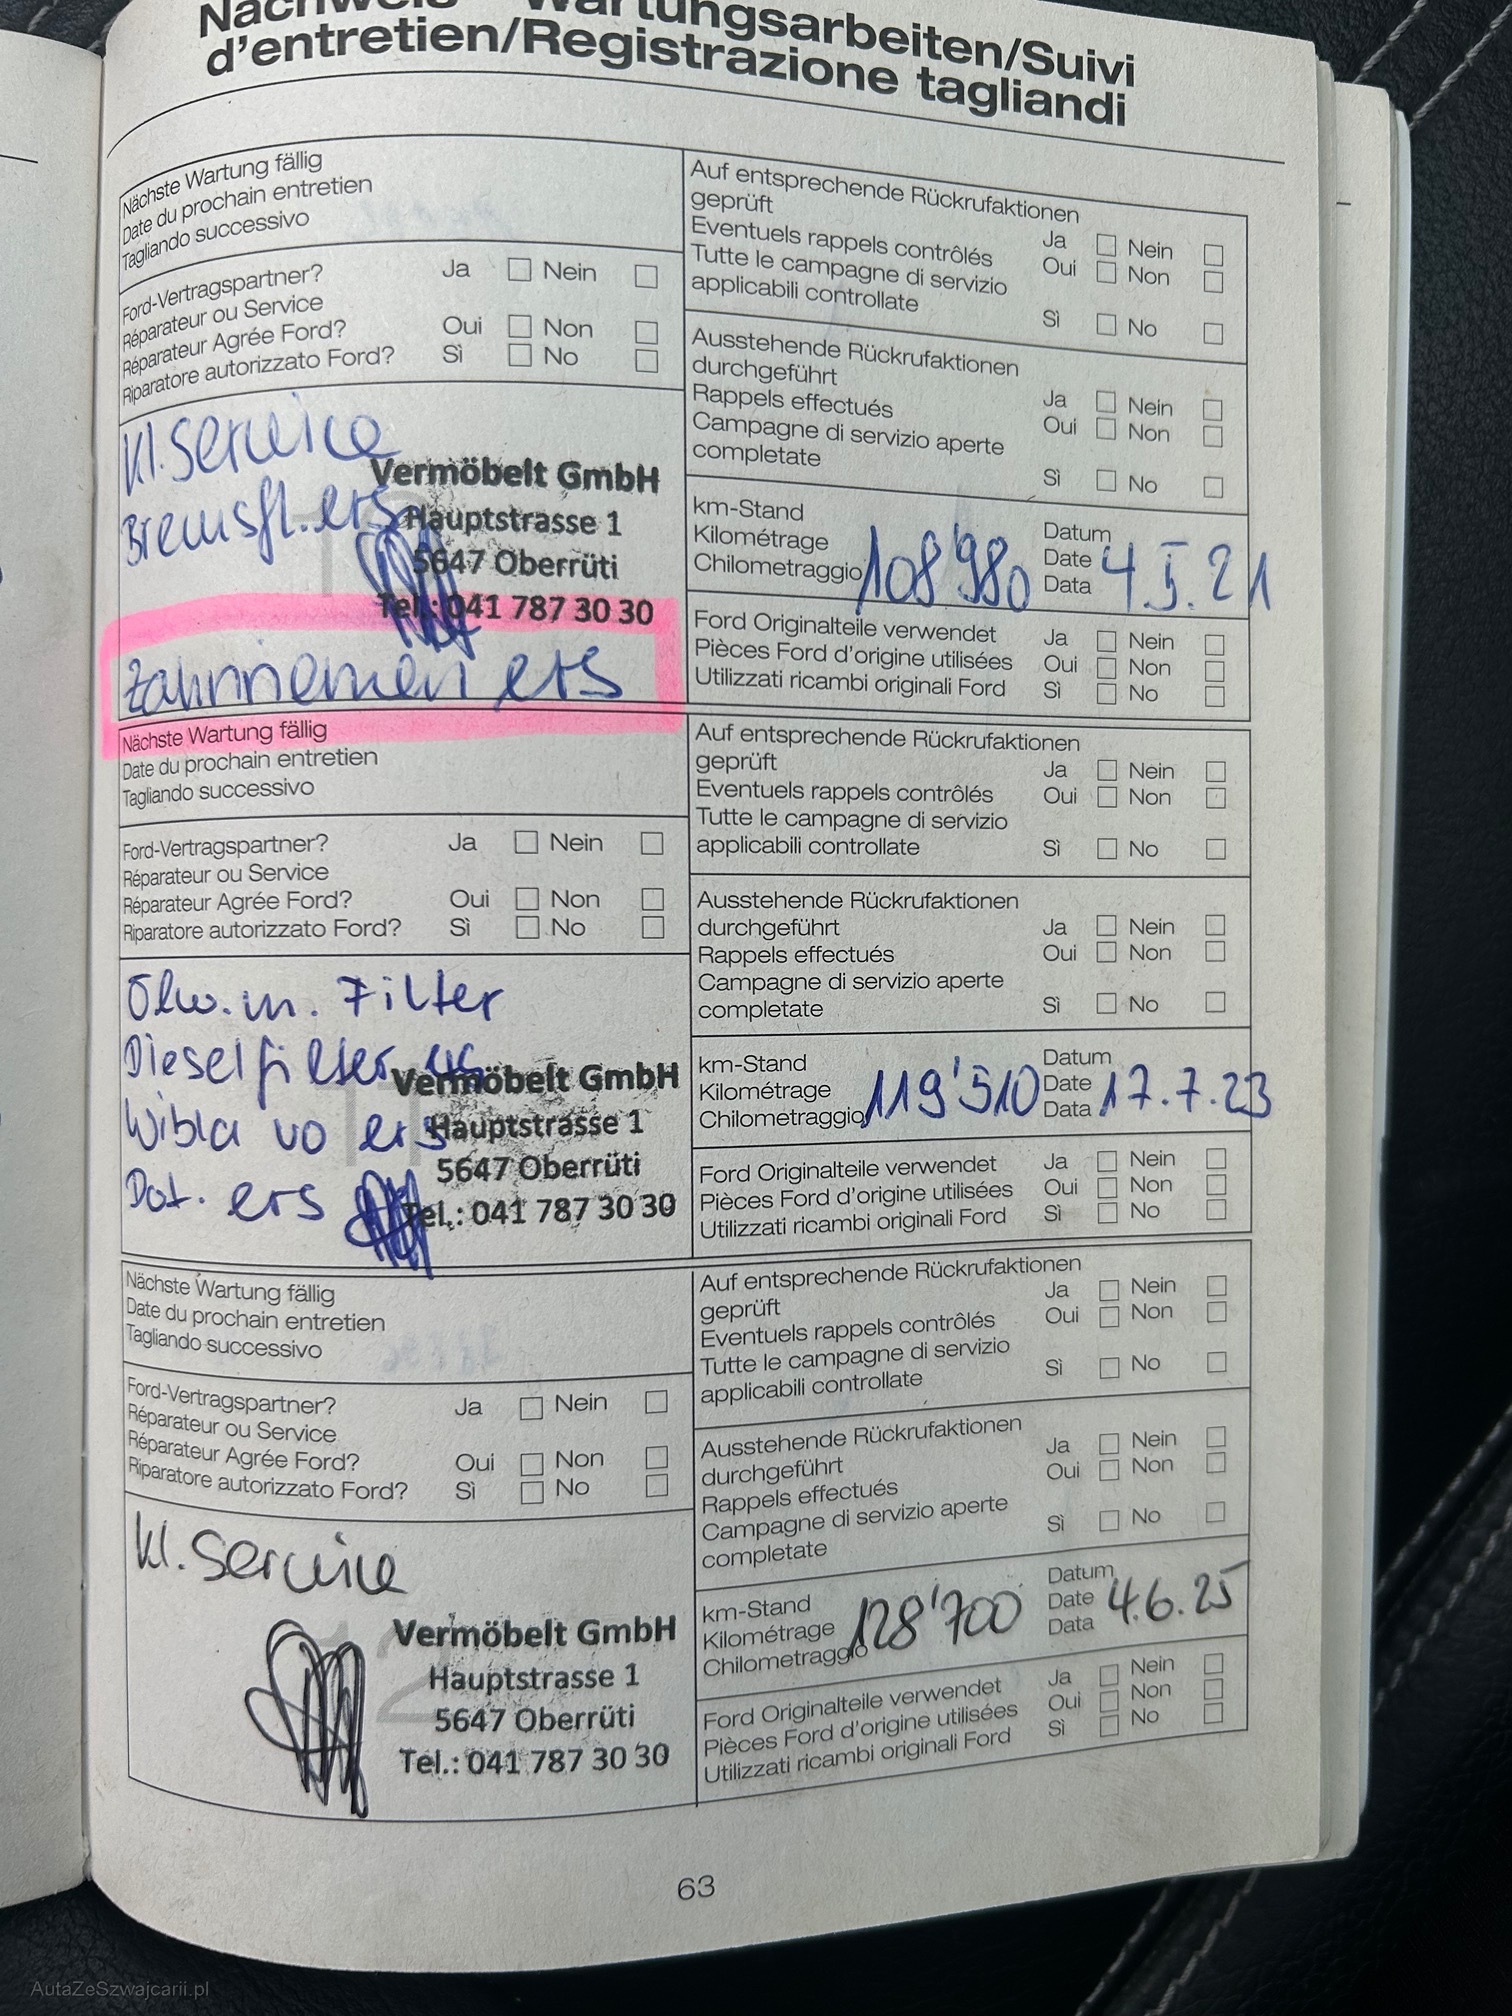 Nachweis - Wartungsarbeiten/Suivi
d'entretien/Registrazione tagliandi
Nächste Wartung fällig
Date du prochain entretien
Tagliando successivo
Ford-Vertragspartner?
Réparateur ou Service
Réparateur Agrée Ford?
Riparatore autorizzato Ford?
Ja Nein
Oui Non
Sì No
Kl. Service
Bremsfl. ers
Vermöbelt GmbH
Hauptstrasse 1
5647 Oberrüti
Tel.: 041 787 30 30
Zahnriemen ers
Auf entsprechende Rückrufaktionen
geprüft
Eventuels rappels contrôlés
Tutte le campagne di servizio
applicabili controllate
Ja Nein
Oui Non
Sì No
Ausstehende Rückrufaktionen
durchgeführt
Rappels effectués
Campagne di servizio aperte
completate
Ja Nein
Oui Non
Sì No
km-Stand
Kilométrage
Chilometraggio
108'980
Datum
Date
Data
4.5.21
Ford Originalteile verwendet
Pièces Ford d'origine utilisées
Utilizzati ricambi originali Ford
Ja Nein
Oui Non
Sì No
Nächste Wartung fällig
Date du prochain entretien
Tagliando successivo
Ford-Vertragspartner?
Réparateur ou Service
Réparateur Agrée Ford?
Riparatore autorizzato Ford?
Ja Nein
Oui Non
Sì No
Ölw. m. Filter
Dieselfilter ers
Wibla vo ers
ers
Vermöbelt GmbH
Hauptstrasse 1
5647 Oberrüti
Tel.: 041 787 30 30
Auf entsprechende Rückrufaktionen
geprüft
Eventuels rappels contrôlés
Tutte le campagne di servizio
applicabili controllate
Ja Nein
Oui Non
Sì No
Ausstehende Rückrufaktionen
durchgeführt
Rappels effectués
Campagne di servizio aperte
completate
Ja Nein
Oui Non
Sì No
km-Stand
Kilométrage
Chilometraggio
119'510
Datum
Date
Data
17.7.23
Ford Originalteile verwendet
Pièces Ford d'origine utilisées
Utilizzati ricambi originali Ford
Ja Nein
Oui Non
Sì No
Nächste Wartung fällig
Date du prochain entretien
Tagliando successivo
Ford-Vertragspartner?
Réparateur ou Service
Réparateur Agrée Ford?
Riparatore autorizzato Ford?
Ja Nein
Oui Non
Sì No
Kl. Service
12
Vermöbelt GmbH
Hauptstrasse 1
5647 Oberrüti
Tel.: 041 787 30 30
Auf entsprechende Rückrufaktionen
geprüft
Eventuels rappels contrôlés
Tutte le campagne di servizio
applicabili controllate
Ja Nein
Oui Non
Sì No
Ausstehende Rückrufaktionen
durchgeführt
Rappels effectués
Campagne di servizio aperte
completate
Ja Nein
Oui Non
Sì No
km-Stand
Kilométrage
Chilometraggio
128'700
Datum
Date
Data
4.6.25
Ford Originalteile verwendet
Pièces Ford d'origine utilisées
Utilizzati ricambi originali Ford
Ja Nein
Oui Non
Sì No
63
AutaZeSzwajcarii.pl